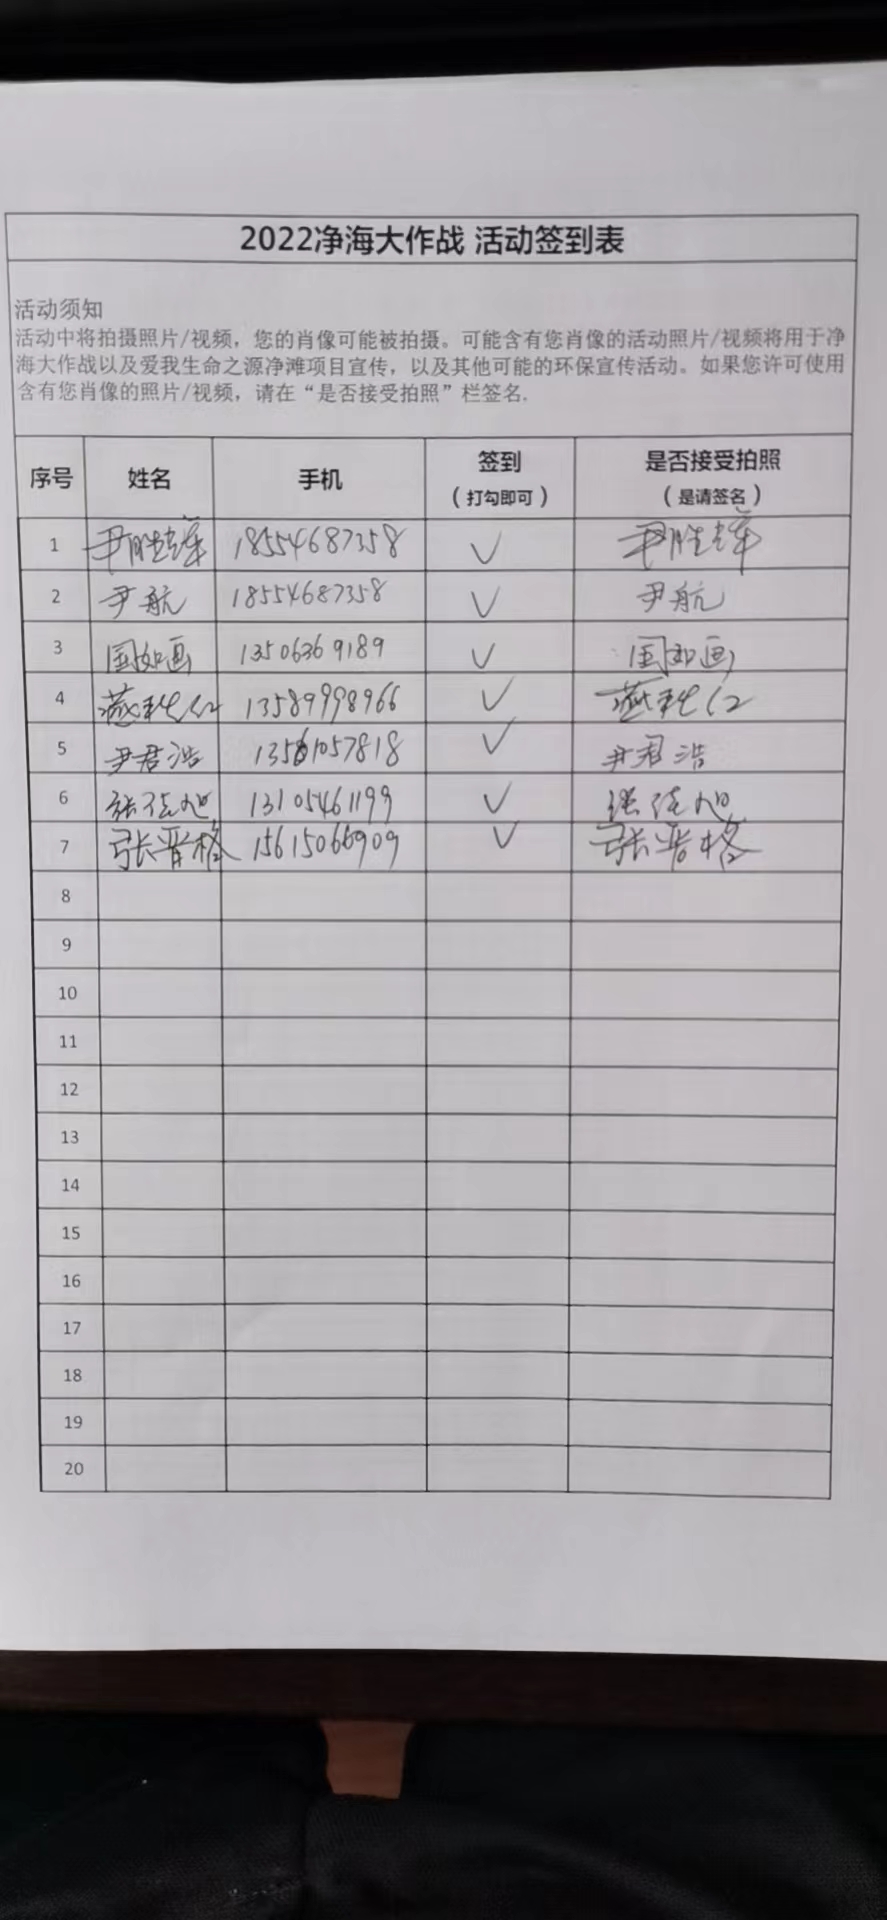 2022净海大作战 活动签到表
活动须知
活动中将拍摄照片/视频，您的肖像可能被拍摄。可能含有您肖像的活动照片/视频将用于净
海大作战以及爱我生命之源净滩项目宣传，以及其他可能的环保宣传活动。如果您许可使用
含有您肖像的照片/视频，请在“是否接受拍照”栏签名.
序号 姓名 手机 签到 是否接受拍照
（打勾即可） （是请签名）
1 尹胜 18554687358 ✓ 尹胜
2 尹航 18554687358 ✓ 尹航
3 国如画 13506369189 ✓ 国如画
4 燕 13589998966 ✓ 燕
5 尹君浩 13561057818 ✓ 尹君浩
6 张佳旭 13105461199 ✓ 张佳旭
7 张晋格 15615066909 ✓ 张晋格
8
9
10
11
12
13
14
15
16
17
18
19
20